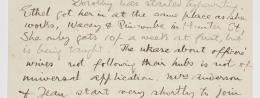 Dorothy has started typewriting.
Ethel got her in at the same place as she
works, Wacey & Pincombe in Hunter St.
She only gets 10/ a week at first, but
is being taught. The ukase about officers'
wives not following their hubs is not of
universal application. Mrs Anderson
& Jean start very shortly to join